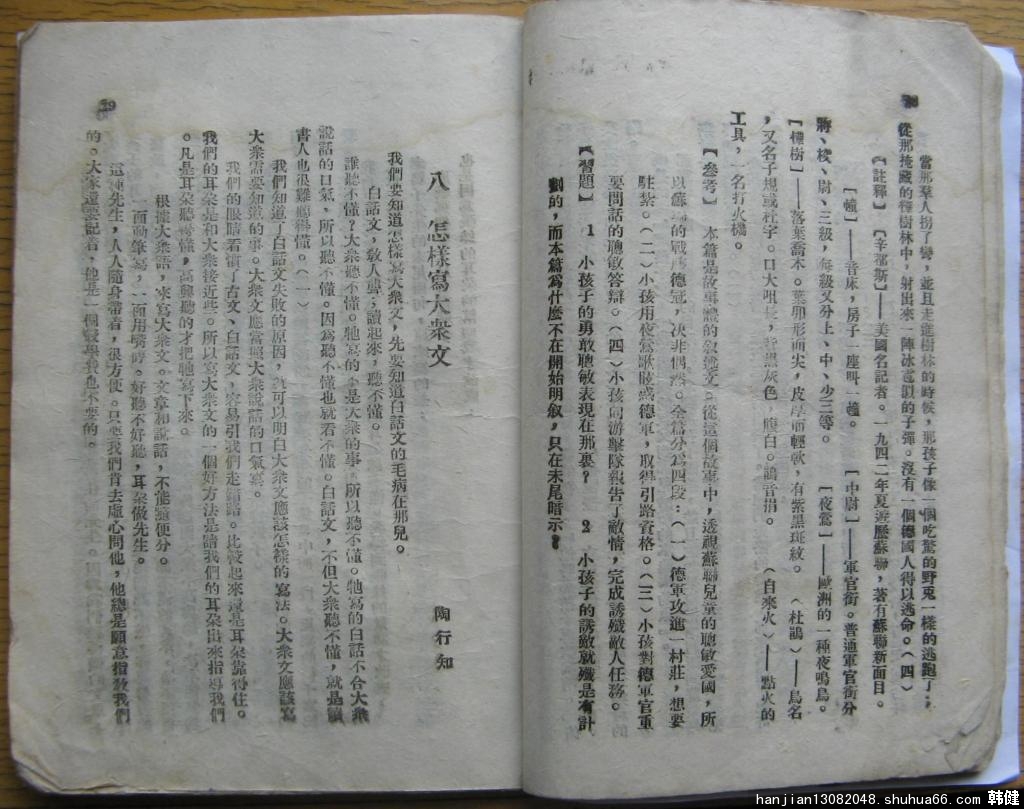 38
當那羣人拐了彎，並且走進樹林的時候，那孩子像一個吃驚的野兎一樣的逃跑了；
從那掩藏的樺樹林中，射出來一陣冰雹似的子彈。沒有一個德國人得以逃命。(四)
【註釋】　[辛都斯]——美國名記者。一九四二年夏遊歷蘇聯，著有蘇聯新面目。
[幢]——音床，房子一座叫一幢。　[中尉]——軍官銜。普通軍官銜分
將、校、尉、三級，每級又分上、中、少三等。　[夜鶯]——歐洲的一種夜鳴鳥。
[樺樹]——落葉喬木。葉卵形而尖，皮厚而輕軟，有紫黑斑紋。　〈杜鵑〉——鳥名
，又名子規或杜宇。口大咀長，背黑灰色，腹白。鵑音捐。　〈自來火〉——點火的
工具，一名打火機。
【參考】　本篇是故事體的敘述文。從這個故事中，透視蘇聯兒童的聰敏愛國，所
以蘇聯的戰勝德寇，决非偶然。全篇分爲四段：(一)德軍攻進一村莊，想要
駐紮。(二)小孩用夜鶯歌眩惑德軍，取得引路資格。(三)小孩對德軍官重
要問話的聰敏答辯。(四)小孩向游擊隊報告了敵情，完成誘殲敵人任務。
【習題】　1　小孩子的勇敢聰敏表現在那裏？　2　小孩子的誘敵就殲是有計
劃的，而本篇爲什麽不在開始明叙，只在末尾暗示？
八　怎樣寫大衆文
陶行知
我們要知道怎樣寫大衆文，先要知道白話文的毛病在那兒。
白話文，敎人聾；讀起來，聽不懂。
誰聽不懂？大衆聽不懂。牠寫的不是大衆的事，所以聽不懂。牠寫的白話不合大衆
說話的口氣，所以聽不懂。因爲聽不懂也就看不懂。白話文，不但大衆聽不懂，就是讀
書人也很難聽得懂。(一)
我們知道了白話文失敗的原因，就可以明白大衆文應該怎樣的寫法。大衆文應該寫
大衆需要知道的事。大衆文應當照大衆說話的口氣寫。
我們的眼睛看慣了古文、白話文，容易引我們走錯路。比較起來還是耳朶靠得住。
我們的耳朶是和大衆接近些。所以寫大衆文的一個好方法是請我們的耳朶出來指導我們
。凡是耳朶聽得懂，高興聽的才把牠寫下來。
根據大衆語，來寫大衆文。文章和說話，不能隨便分。
一面動筆寫，一面用嘴哼。好聽不好聽，耳朶做先生。
這種先生，人人隨身帶着，很方便。只要我們肯去虛心問他，他總是願意指敎我們
的。大家還要記着，他是一個錢學費也不要的。
29
hanjian13082048. shuhua66.com 韩健